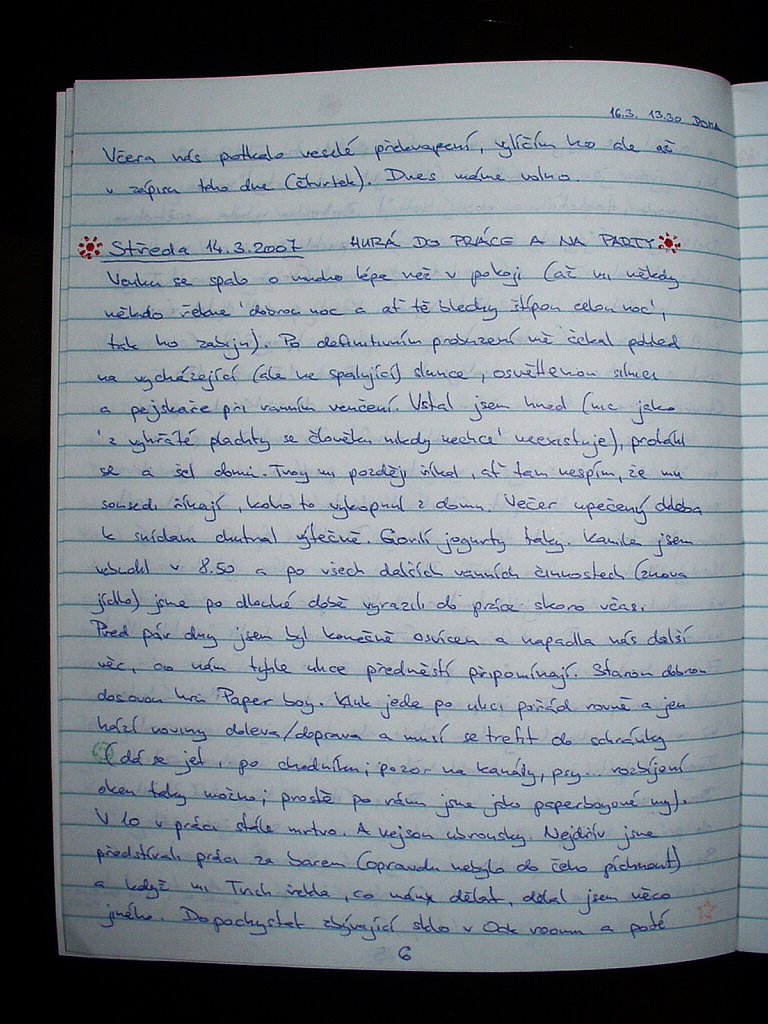 16.3. 13.30 DOMA
Včera nás potkalo veselé překvapení, vylíčím ho ale až
v zápisu toho dne (čtvrtek). Dnes máme volno.
Středa 14.3.2007 HURÁ DO PRÁCE A NA PARTY
Venku se spalo o mnoho lépe než v pokoji (až mi někdy
někdo řekne 'dobrou noc a ať tě blechy štípou celou noc',
tak ho zabiju). Po definitivním probuzení mě čekal pohled
na vycházející (ale ne spalující) slunce, osvětlenou silnici
a pejskaře při ranním venčení. Vstal jsem hned (nic jako
'z vyhřáté plachty se člověku nikdy nechce' neexistuje), protáhl
se a šel domů. Troy mi později říkal, ať tam nespím, že mu
sousedi říkají, koho to vykopnul z domu. Večer upečený chleba
k snídani chutnal výtečně. Gorilí jogurty taky. Kamila jsem
vzbudil v 8.50 a po všech dalších ranních činnostech (znova
jídlo) jsme po dlouhé době vyrazili do práce skoro včas.
Před pár dny jsem byl konečně osvícen a napadla nás další
věc, co nám tyhle ulice předměstí připomínají. Starou dobrou
dosovou hru Paper boy. Kluk jede po ulici pořád rovně a jen
hází noviny doleva/doprava a musí se trefit do schránky
(dá se jet i po chodníku; pozor na kanály, psy... rozbíjení
oken taky možno; prostě po ránu jsme jako paperboyové my).
V 10 v práci stále mrtvo. A nejsou ubrousky. Nejdřív jsme
předstírali práci za barem (opravdu nebylo do čeho píchnout)
a když mi Trich řekla, co mám dělat, dělal jsem něco
jiného. Dopochystat zbývající sklo v Oak roomu a poté
6